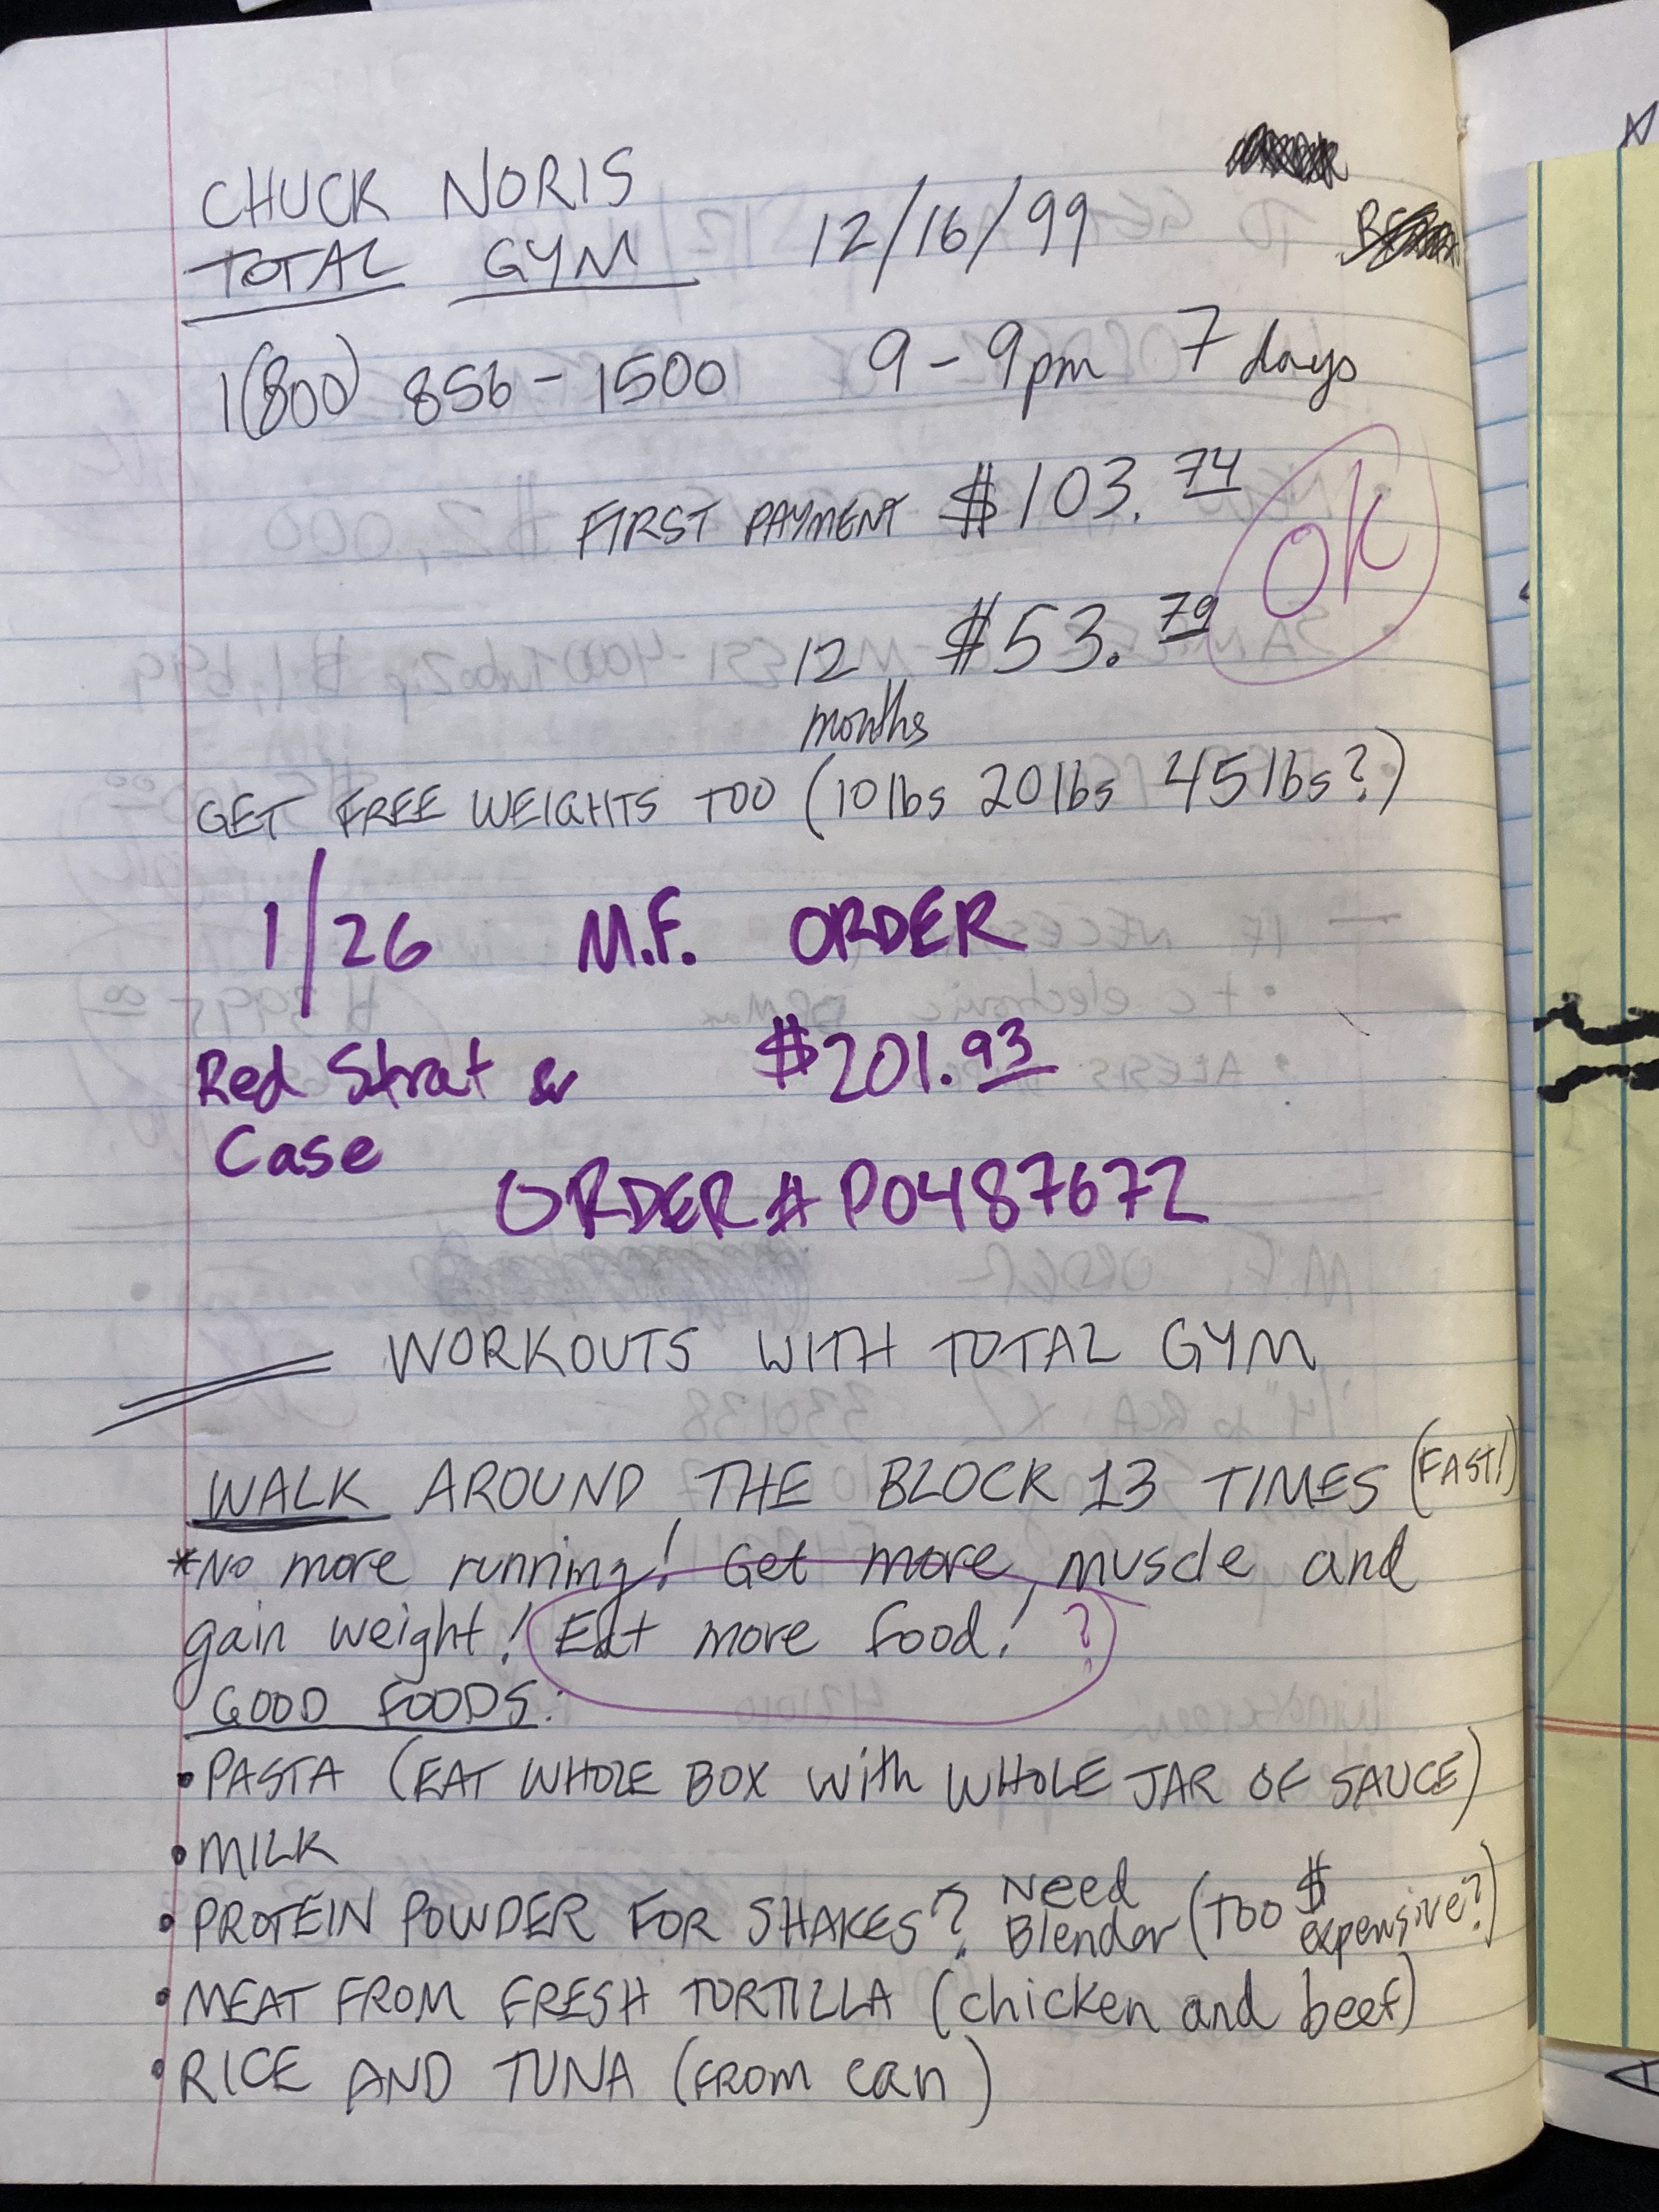 CHUCK NORIS
TOTAL GYM 12/16/99
1(800) 856-1500 9-9pm 7 days
FIRST PAYMENT $103.74
OK
12 months $53.79
GET FREE WEIGHTS TOO (10lbs 20lbs 45lbs?)
1/26 M.F. ORDER
Red Strat & $201.93
Case
ORDER# P0487672
WORKOUTS WITH TOTAL GYM
WALK AROUND THE BLOCK 13 TIMES (FAST!)
*No more running! Get more muscle and
gain weight! Eat more food! ?
GOOD FOODS:
• PASTA (EAT WHOLE BOX with WHOLE JAR OF SAUCE)
• MILK
• PROTEIN POWDER FOR SHAKES? Need Blender (TOO $ expensive?)
• MEAT FROM FRESH TORTILLA (chicken and beef)
• RICE AND TUNA (FROM can)